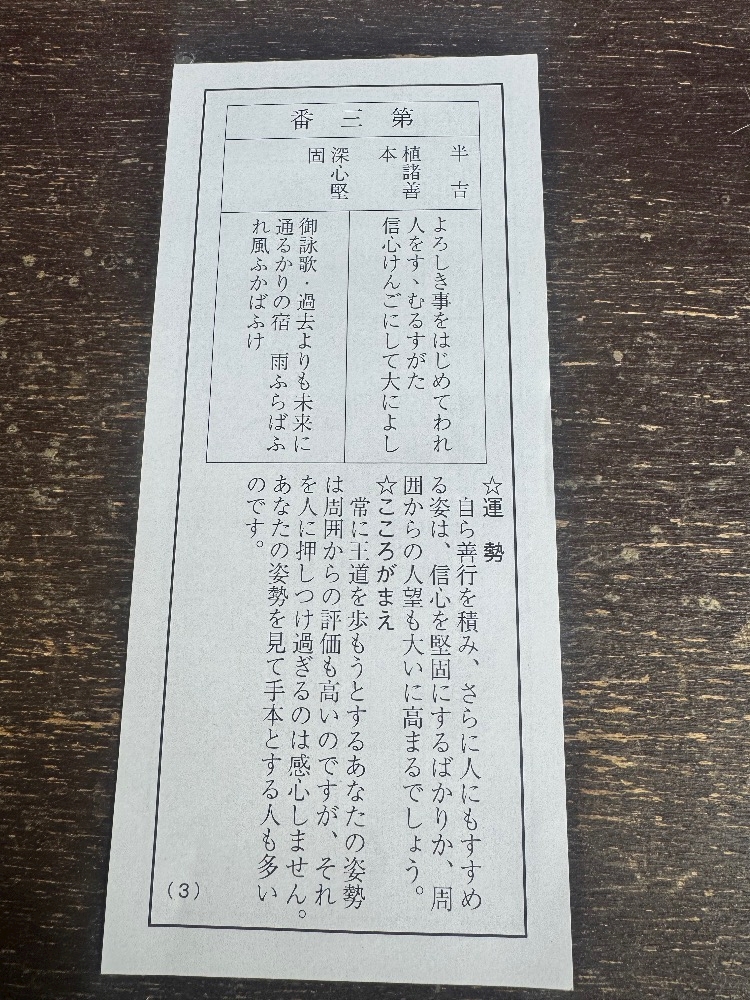 第三番
半吉
植諸善
本
深心堅
固
よろしき事をはじめてわれ
人をすゝむるすがた
信心けんごにして大によし
御詠歌・過去よりも未来に
通るかりの宿　雨ふらばふ
れ風ふかばふけ
☆運勢
自ら善行を積み、さらに人にもすすめ
る姿は、信心を堅固にするばかりか、周
囲からの人望も大いに高まるでしょう。
☆こころがまえ
常に王道を歩もうとするあなたの姿勢
は周囲からの評価も高いのですが、それ
を人に押しつけ過ぎるのは感心しません。
あなたの姿勢を見て手本とする人も多い
のです。
（3）